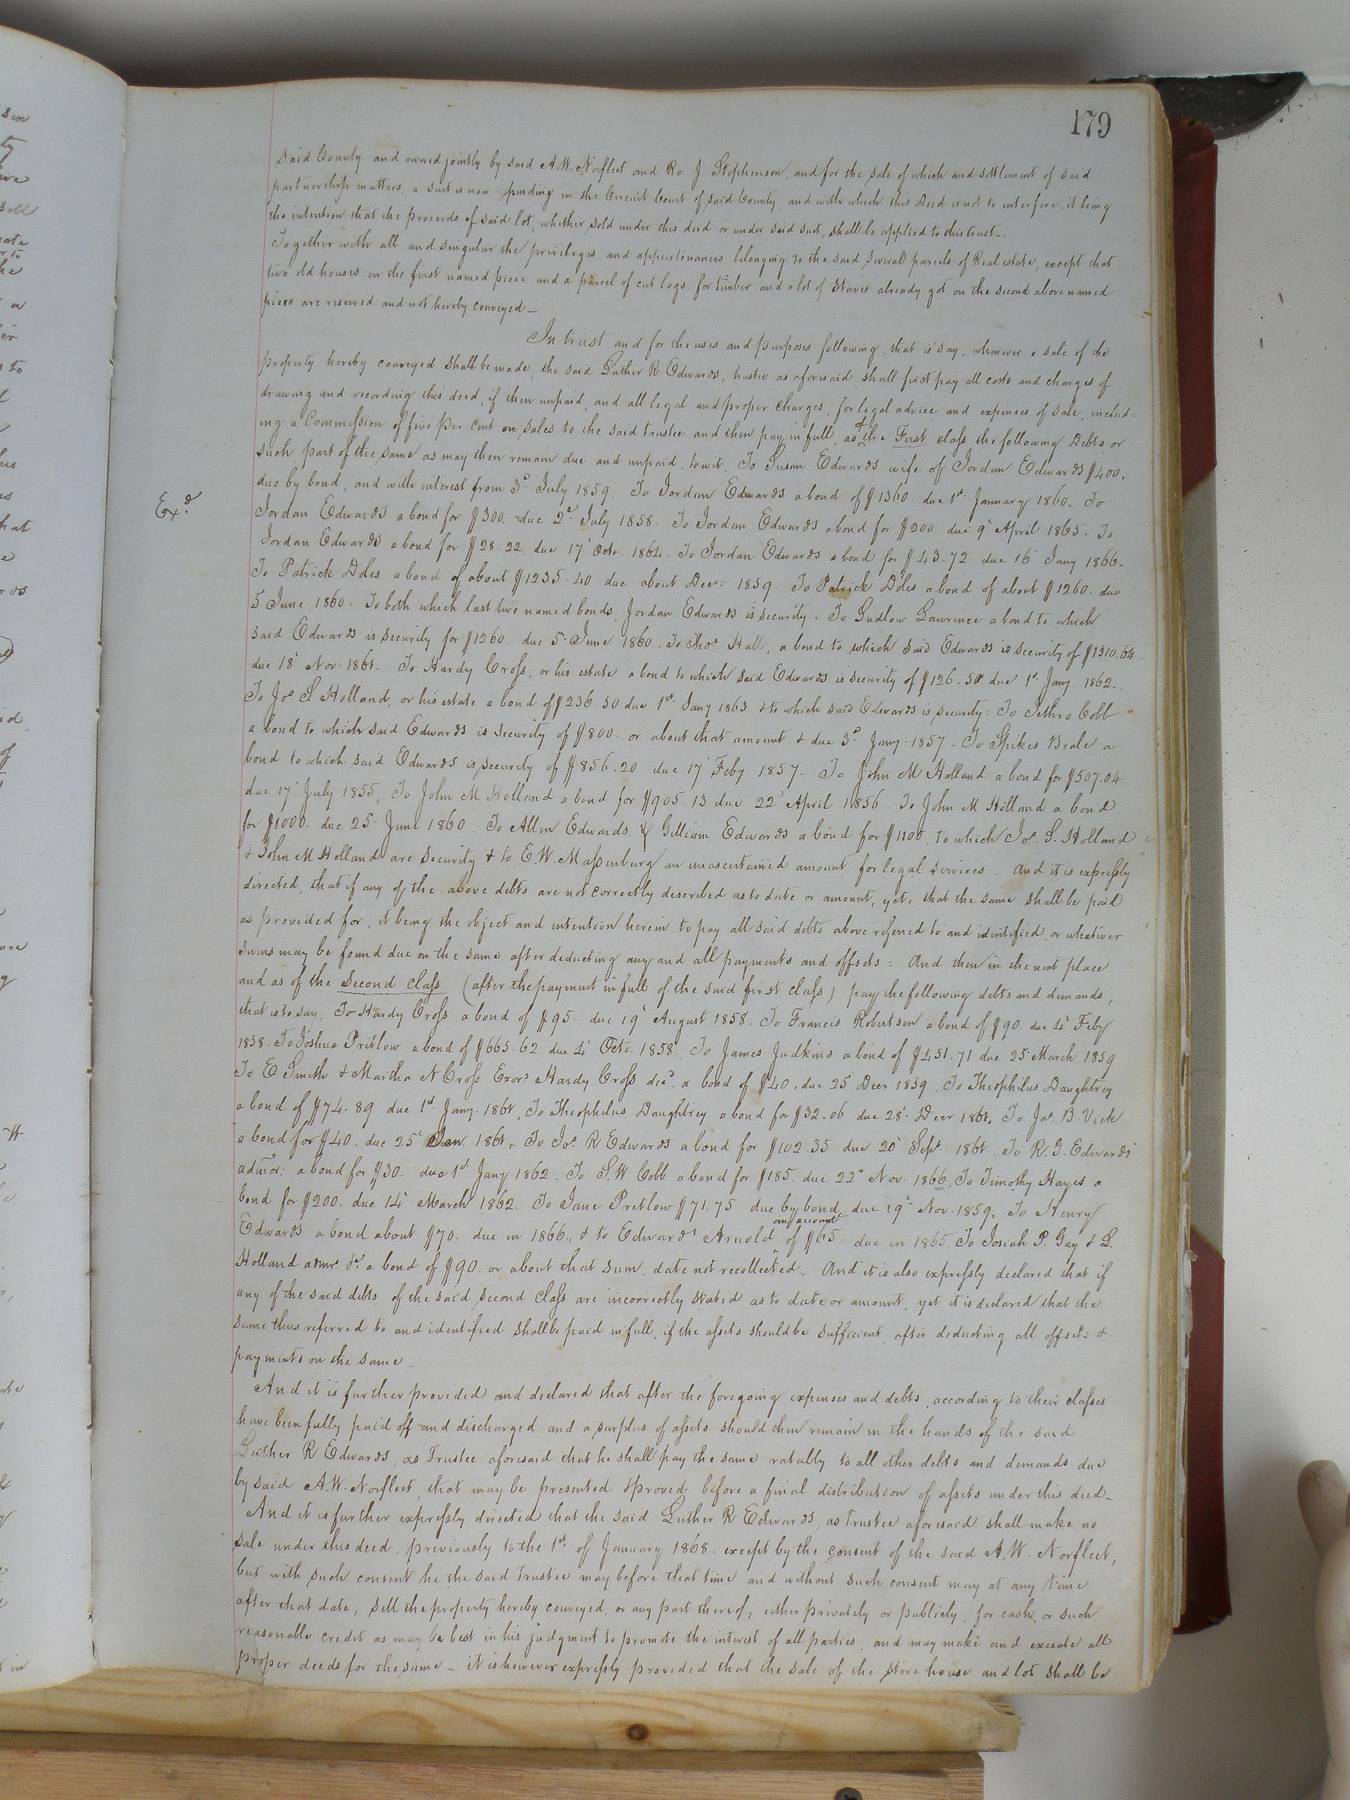 179
said County and owned jointly by said A.W. Norfleet and Ro. J Stephenson, and for the sale of which and settlement of said
partnership matters, a suit is now pending in the Circuit Court of said County, and with which this Deed is not to interfere, it being
the intention that the proceeds of said lot, whether sold under this deed or under said suit, shall be applied to this trust.
Together with all and singular the privileges and appurtenances belonging to the said several parcels of Real estate, except that
two old houses on the first named piece and a parcel of cut logs for timber and a lot of Staves already got on the second above named
piece are reserved and not hereby conveyed—
In trust and for the uses and purposes following, that is say, whenever a sale of the
property hereby conveyed shall be made, the said Luther R Edwards, trustee as aforesaid shall first pay all costs and charges of
drawing and recording this deed, if then unpaid, and all legal and proper charges, for legal advice and expenses of sale, includ-
ing a Commission of five per cent on sales to the said trustee and then pay in full, as of the First class the following Debts or
such part of the same as may then remain due and unpaid, to wit, To Susan Edwards wife of Jordan Edwards $400.
due by bond, and with interest from 3d July 1859. To Jordan Edwards a bond of $1360. due 1st January 1860. To
Exd.
Jordan Edwards a bond for $300. due 2d July 1858. To Jordan Edwards a bond for $200 due 9' April 1865. To
Jordan Edwards a bond for $28.22. due 17' Octo. 1864. To Jordan Edwards a bond for $43.72 due 16' Jany 1866.
To Patrick Doles a bond of about $1235.40 due about Decr. 1859 To Patrick Doles a bond of about $1260. due
5 June 1860. To both which last two named bonds, Jordan Edwards is security. To Ludlow Lawrence a bond to which
said Edwards is security for $1260. due 5 June 1860. To Thos. Hall, a bond to which said Edwards is security of $1310.64.
due 18' Nov. 1861. To Hardy Cross, or his estate a bond to which said Edwards is security of $126.50 due 1st Jany. 1862.
To Jos. S Holland, or his estate a bond of $236.50 due 1st Jany 1863 & to which said Edwards is security. To Jethro Cobb
a bond to which said Edwards is security of $800. or about that amount & due 3d Jany. 1857. To Spikes Beale a
bond to which said Edwards is security of $856.20 due 17' Feby 1857. To John M Holland a bond for $507.04
due 17' July 1855, To John M Holland a bond for $905.13 due 22' April 1856 To John M Holland a bond
for $1000. due 25 June 1860. To Allen Edwards & Gilliam Edwards a bond for $1100, to which Jos. S. Holland
& John M Holland are security & to E.W. Massenburg an unascertained amount for legal services. And it is expressly
directed, that if any of the above debts are not correctly described as to date or amount, yet, that the same shall be paid
as provided for, it being the object and intention herein to pay all said debts above referred to and identified, or whatever
sums may be found due on the same after deducting any and all payments and offsets: And then in the next place
and as of the Second class (after the payment in full of the said first class) pay the following debts and demands,
that is to say, To Hardy Cross a bond of $95. due 19' August 1858. To Francis Robertson a bond of $90. due 4' Feby
1858. To Joshua Pretlow a bond of $665.62 due 4' Octo. 1858. To James Judkins a bond of $451.71 due 25 March 1859
To E Smith & Martha N Cross Exors. Hardy Cross decd. a bond of $40, due 25 Decr 1859. To Theophilus Daughtrey
a bond of $74.89 due 1st Jany. 1861, To Theophilus Daughtrey a bond for $32.06 due 28' Decr 1861. To Jas. B. Vick
a bond for $40. due 25' Jan 1861. To Jos. R Edwards a bond for $102.35 due 20' Sept. 1861. To R.G. Edwards'
admor: a bond for $30. due 1st Jany 1862. To S.W Cobb a bond for $185. due 22d Nov. 1866, To Timothy Hayes a
bond for $200. due 14' March 1862. To Jane Pretlow $71.75 due by bond, due 19' Nov. 1859. To Henry
Edwards a bond about $70. due in 1866, & to Edward Arnold an account of $65. due in 1865. To Josiah P. Gay & S.
Holland admr. &c. a bond of $90. or about that sum, date not recollected. And it is also expressly declared that if
any of the said debts of the said second class are incorrectly stated as to date or amount, yet it is declared that the
same thus referred to and identified shall be paid in full, if the assets should be sufficient, after deducting all offsets &
payments on the same—
And it is further provided and declared that after the foregoing expenses and debts, according to their classes
have been fully paid off and discharged and a surplus of assets should then remain in the hands of the said
Luther R Edwards, as Trustee aforesaid that he shall pay the same ratably to all other debts and demands due
by said A.W. Norfleet, that may be presented & proved before a final distribution of assets under this deed—
And it is further expressly directed that the said Luther R Edwards, as trustee aforesaid shall make no
sale under this deed, previously to the 1st. of January 1868. except by the consent of the said A.W. Norfleet,
but with such consent he the said trustee may before that time and without such consent may at any time
after that date, sell the property hereby conveyed, or any part thereof, either privately or publicly, for cash, or such
reasonable credit as may be best in his judgment to promote the interest of all parties, and may make and execute all
proper deeds for the same— it is however expressly provided that the sale of the store house and lot shall be